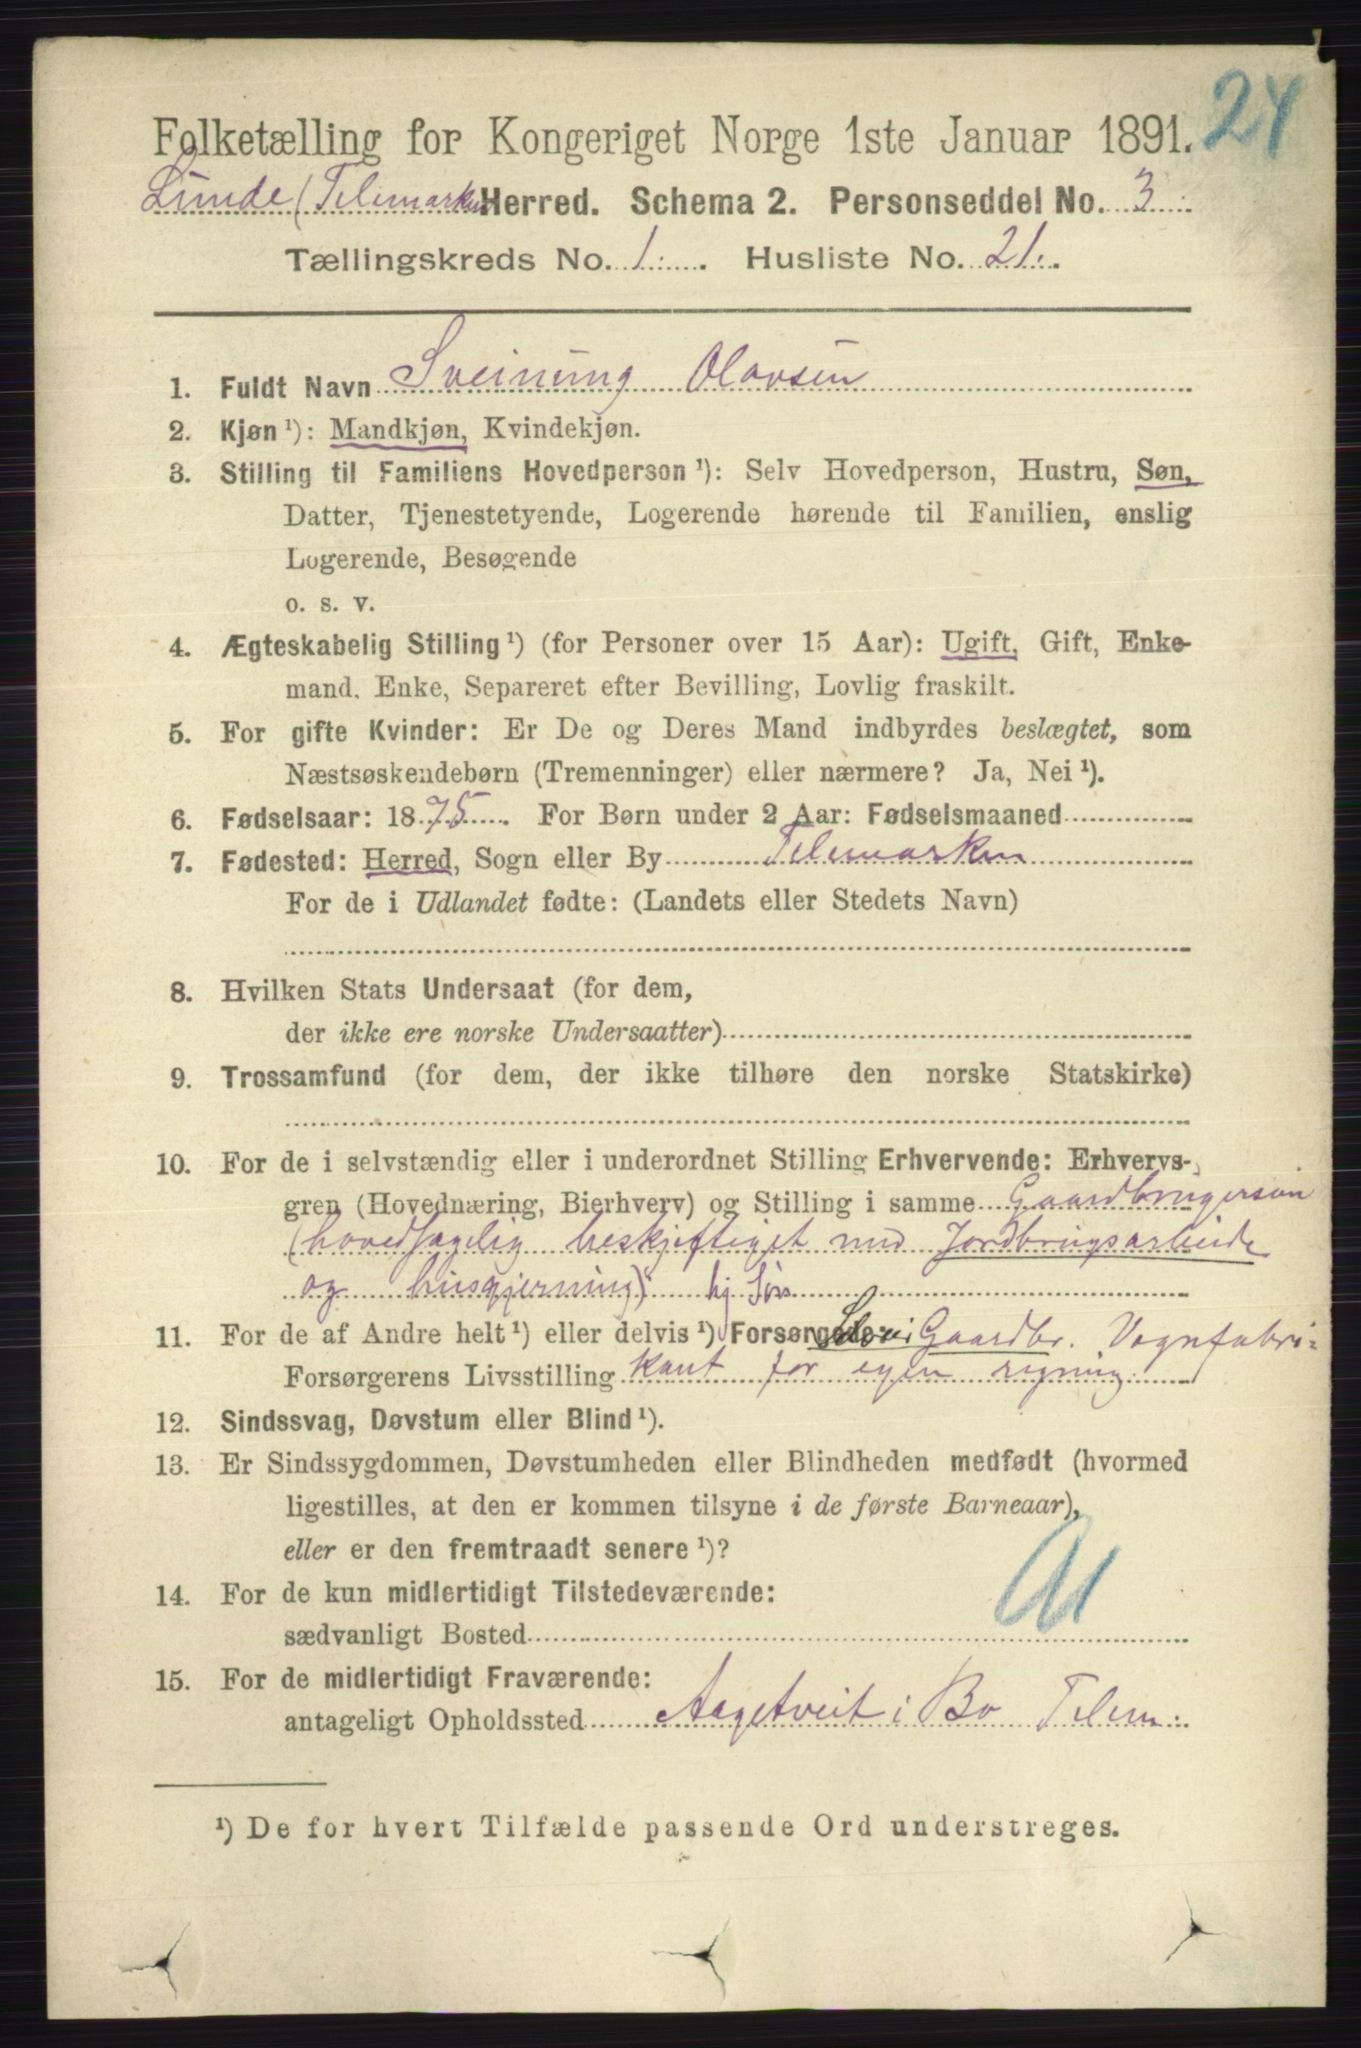 24
Folketælling for Kongeriget Norge 1ste Januar 1891.
Lunde (Telemarken Herred. Schema 2. Personseddel No. 3
Tællingskreds No. 1. Husliste No. 21.
1. Fuldt Navn Sveinung Olavsen
2. Kjøn ¹): Mandkjøn, Kvindekjøn.
3. Stilling til Familiens Hovedperson ¹): Selv Hovedperson, Hustru, Søn,
Datter, Tjenestetyende, Logerende hørende til Familien, enslig
Logerende, Besøgende
o. s. v.
4. Ægteskabelig Stilling ¹) (for Personer over 15 Aar): Ugift, Gift, Enke-
mand, Enke, Separeret efter Bevilling, Lovlig fraskilt.
5. For gifte Kvinder: Er De og Deres Mand indbyrdes beslægtet, som
Næstsøskendebørn (Tremenninger) eller nærmere? Ja, Nei ¹).
6. Fødselsaar: 1875. For Børn under 2 Aar: Fødselsmaaned
7. Fødested: Herred, Sogn eller By Telemarken
For de i Udlandet fødte: (Landets eller Stedets Navn)
8. Hvilken Stats Undersaat (for dem,
der ikke ere norske Undersaatter)
9. Trossamfund (for dem, der ikke tilhøre den norske Statskirke)
10. For de i selvstændig eller i underordnet Stilling Erhvervende: Erhvervs-
gren (Hovednæring, Bierhverv) og Stilling i samme Gaardbrugersøn
(hovedsagelig beskjeftiget med Jordbrugsarbeide
og husgjerning) hj
11. For de af Andre helt ¹) eller delvis ¹) Forsørgede: Gaardbr. Vognfabri-
Forsørgerens Livsstilling kant for egen regning
12. Sindssvag, Døvstum eller Blind ¹).
13. Er Sindssygdommen, Døvstumheden eller Blindheden medfødt (hvormed
ligestilles, at den er kommen tilsyne i de første Barneaar),
eller er den fremtraadt senere ¹)?
14. For de kun midlertidigt Tilstedeværende:
sædvanligt Bosted
15. For de midlertidigt Fraværende:
antageligt Opholdssted Aagetveit i Bø Telem.
¹) De for hvert Tilfælde passende Ord understreges.